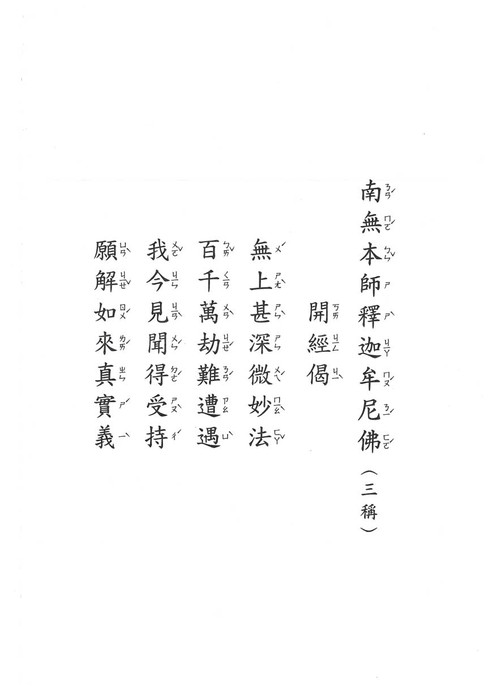 南無本師釋迦牟尼佛(三稱)
開經偈
無上甚深微妙法
百千萬劫難遭遇
我今見聞得受持
願解如來真實義